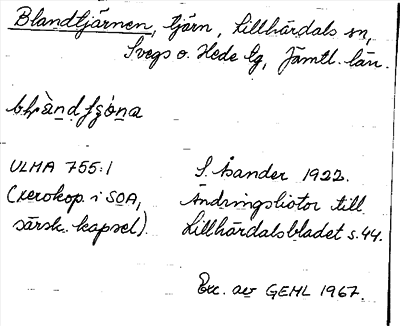 Blandtjärnen, tjärn, Lillhärdals sn,
Svegs o. Hede tg, Jämtl. län.
ULMA 755:1
S. Åsander 1922.
(xerokop. i SOA,
Ändringslistor till
särsk. kapsel).
Lillhärdalsbladet s. 44.
Exc. av GEHL 1967.